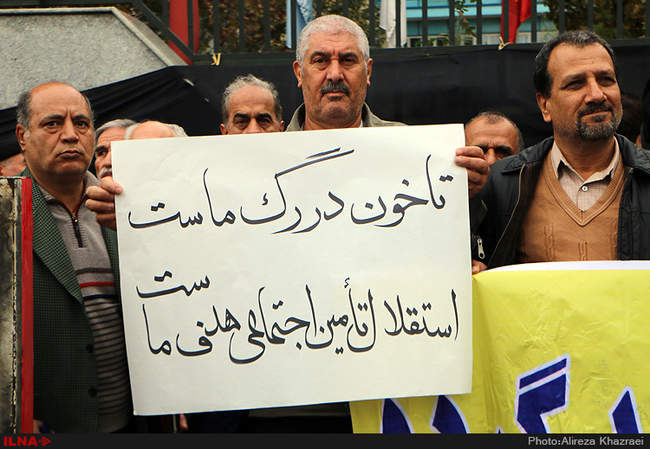 تا خون در رگ ماست
استقلال تأمین اجتماعی هدف ماست
ماست
ILNA
Photo:Alireza Khazraei